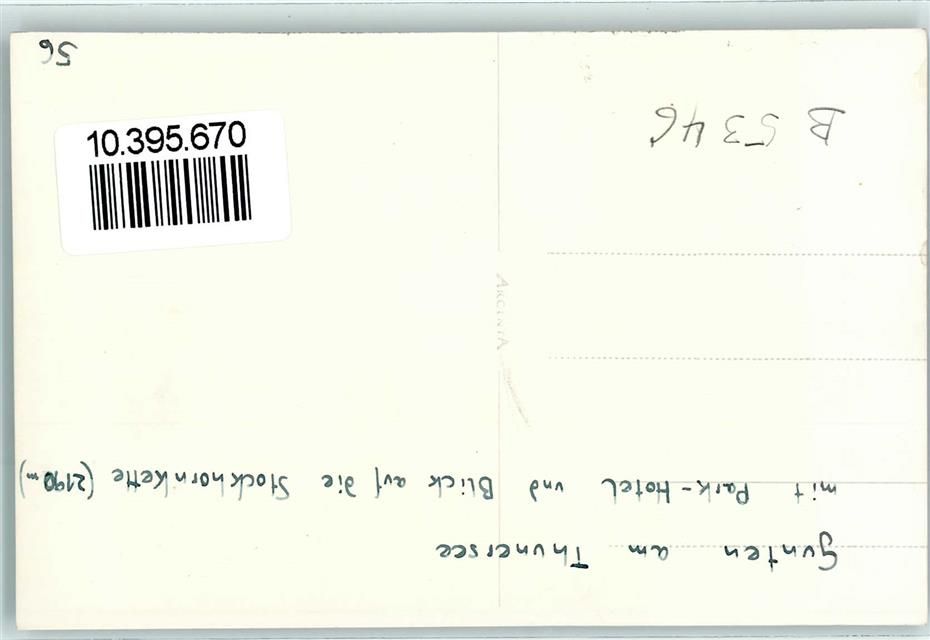 Gunten am Thunersee
mit Park-Hotel und Blick auf die Stockhornkette (2190 m)
B 5346
56
10.395.670
ARGENTA